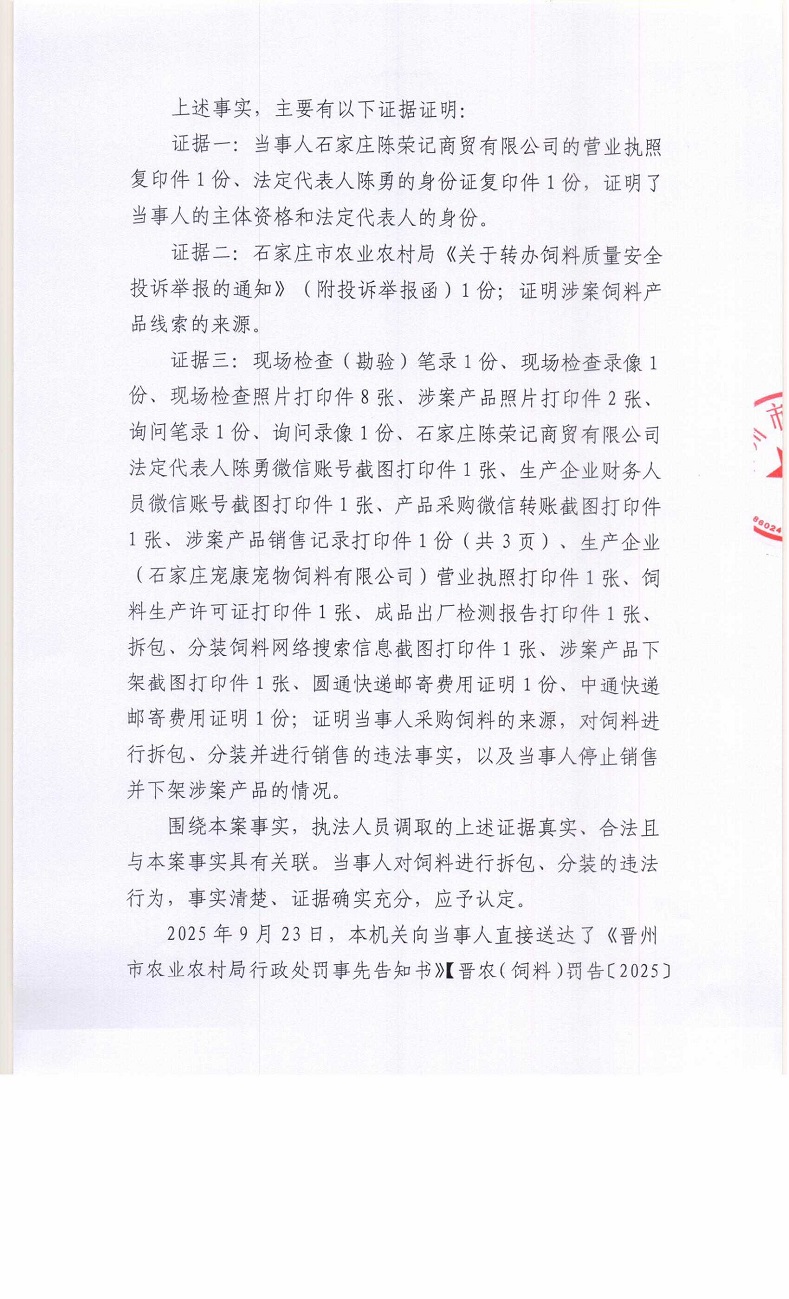 上述事实，主要有以下证据证明：
证据一：当事人石家庄陈荣记商贸有限公司的营业执照
复印件1份、法定代表人陈勇的身份证复印件1份，证明了
当事人的主体资格和法定代表人的身份。
证据二：石家庄市农业农村局《关于转办饲料质量安全
投诉举报的通知》（附投诉举报函）1份；证明涉案饲料产
品线索的来源。
证据三：现场检查（勘验）笔录1份、现场检查录像1
份、现场检查照片打印件8张、涉案产品照片打印件2张、
询问笔录1份、询问录像1份、石家庄陈荣记商贸有限公司
法定代表人陈勇微信账号截图打印件1张、生产企业财务人
员微信账号截图打印件1张、产品采购微信转账截图打印件
1张、涉案产品销售记录打印件1份（共3页）、生产企业
（石家庄宠康宠物饲料有限公司）营业执照打印件1张、饲
料生产许可证打印件1张、成品出厂检测报告打印件1张、
拆包、分装饲料网络搜索信息截图打印件1张、涉案产品下
架截图打印件1张、圆通快递邮寄费用证明1份、中通快递
邮寄费用证明1份；证明当事人采购饲料的来源，对饲料进
行拆包、分装并进行销售的违法事实，以及当事人停止销售
并下架涉案产品的情况。
围绕本案事实，执法人员调取的上述证据真实、合法且
与本案事实具有关联。当事人对饲料进行拆包、分装的违法
行为，事实清楚、证据确实充分，应予认定。
2025年9月23日，本机关向当事人直接送达了《晋州
市农业农村局行政处罚事先告知书》【晋农（饲料）罚告〔2025〕
州市
86024